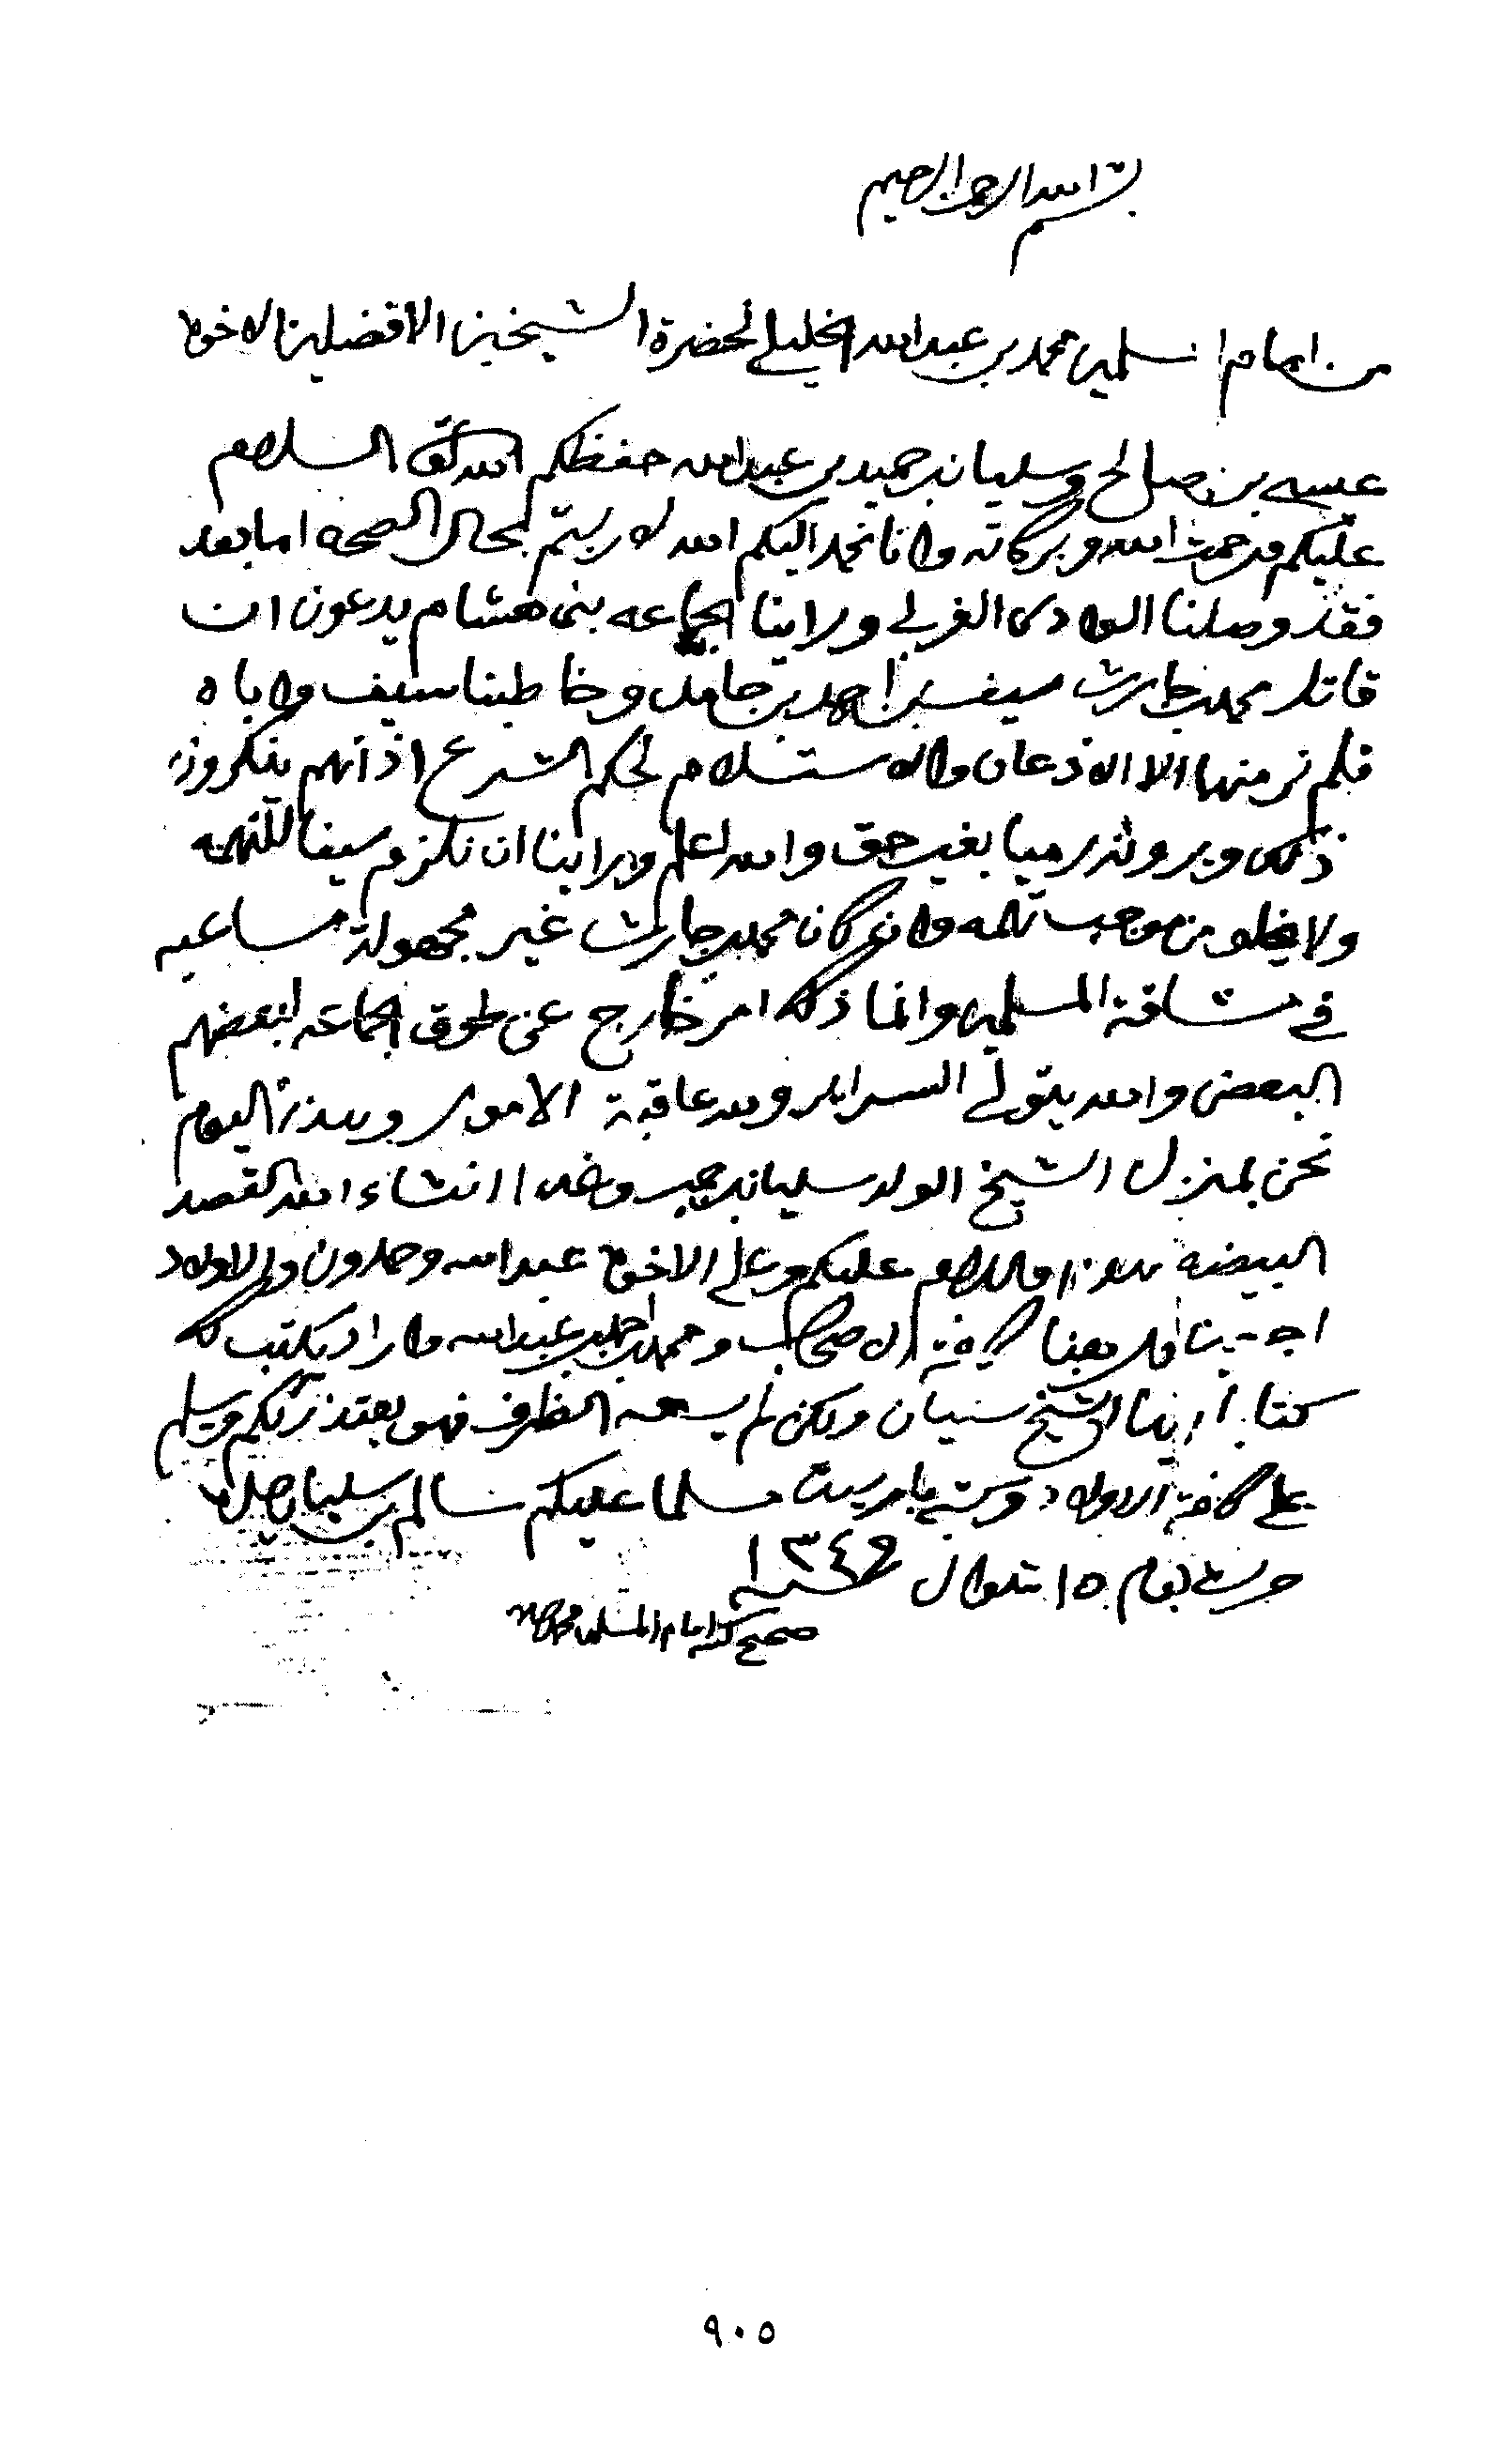 بسم الله الرحمن الرحيم
من امام المسلمين محمد بن عبدالله الخليلي لحضرة الشيخين الافضلين الاخوين
عيسى بن صالح وسليمان بن حمير بن عبدالله حفظكم الله تعالى السلام
عليكم ورحمت الله وبركاته وانا نحمد اليكم الله لا زلتم بحال الصحه اما بعد
فقد وصلنا الوادي الغربي وراينا الجماعه بني هشام يدعون ان
قاتل محمد بن حارث سيف بن احمد بن حامد وخاطبنا سيف واباه
فلم نر منهما الا الاذعان والاستسلام لحكم الشرع اذ انهم ينكرون
ذلك ويرونه رميا بغير حق والله اعلم وراينا ان نلزم سيفا للتهمه
ولا يخلو من موجب تهمه وان كان محمد بن حارث غير مجهولة مساعيه
في مشاقة المسلمين وانما ذلك امر خارج عن طوق الجماعه لبعضهم
البعض والله يتولى السراير ولله عاقبة الامور وبعد اليوم
نحن بمنزل الشيخ الولد سليمان بن حمير وغدا انشاء الله القصد
البيضه والسلام عليكم وعلى الاخوين عبدالله وحمدون والاولاد
من معنا كافة الاصحاب ومحمد بن احمد بن عبدالله واراد يكتب لك
كتابا الشيخ سليمان ولكن لم يسعه الظرف فهو يعتذر لكم ويسلم
على كافة الاولاد وكتبه بامره مسلما عليكم سالم بن سليمان
حرر يوم ١٥ شوال سنه ١٣٤٩
صحيح كتبه امام المسلمين محمد
٩٠٥